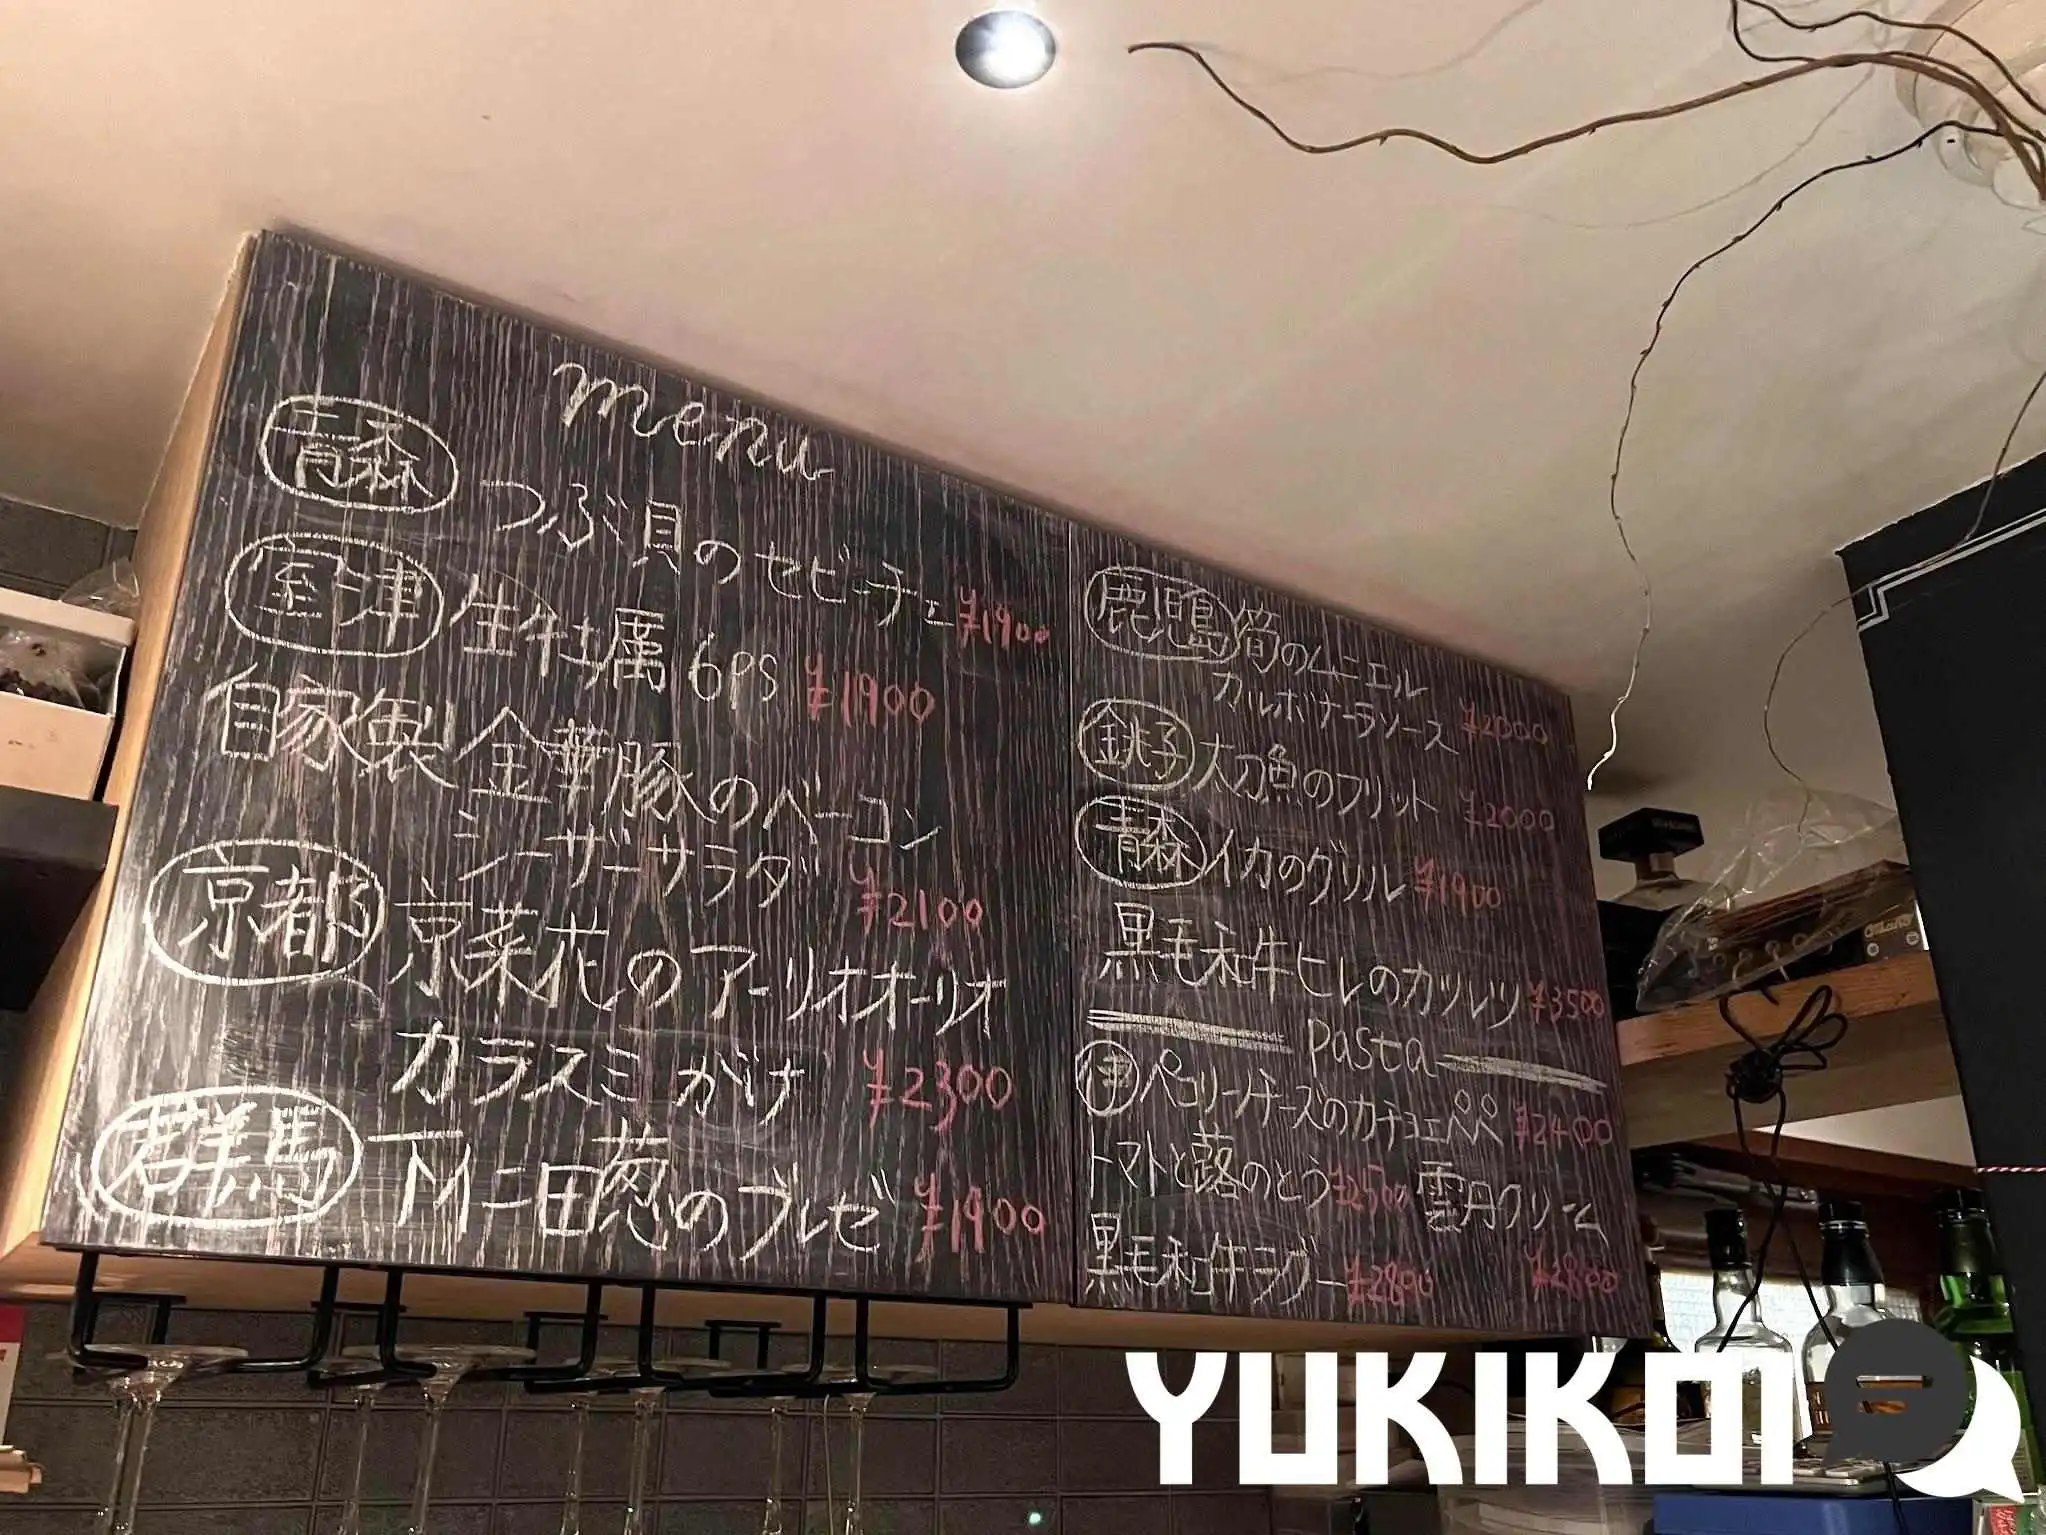 menu
青森 つぶ貝のセビーチェ ¥1900
室津 生牡蠣 6ps ¥1900
自家製 金華豚のベーコン
シーザーサラダ ¥2100
京都 京菜花のアーリオオーリオ
カラスミがけ ¥2300
群馬 下仁田葱のブレゼ ¥1900
鹿児島 筍のムニエル
カルボナーラソース ¥2000
銚子 太刀魚のフリット ¥2000
青森 イカのグリル ¥1900
黒毛和牛ヒレのカツレツ ¥3500
pasta
ペコリーノチーズのカチョエペペ ¥2400
トマトと蕗のとう ¥2500 雲丹クリーム ¥2800
黒毛和牛ラグー ¥2800
YUKIKOI